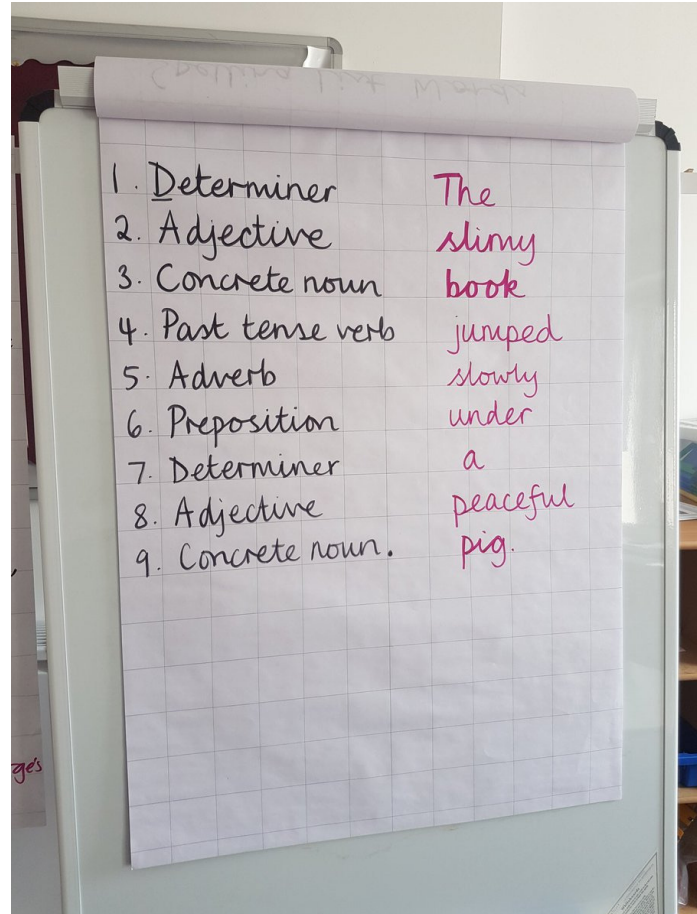 Spelling List Words
1. Determiner The
2. Adjective slimy
3. Concrete noun book
4. Past tense verb jumped
5. Adverb slowly
6. Preposition under
7. Determiner a
8. Adjective peaceful
9. Concrete noun. pig.
ge's